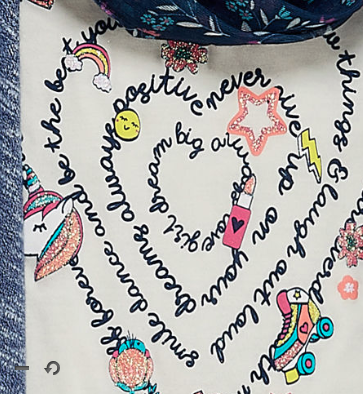 dream big a
love girl
always positive never give up on your dreams
smile dance and be the be t you
things & laugh out loud
forever